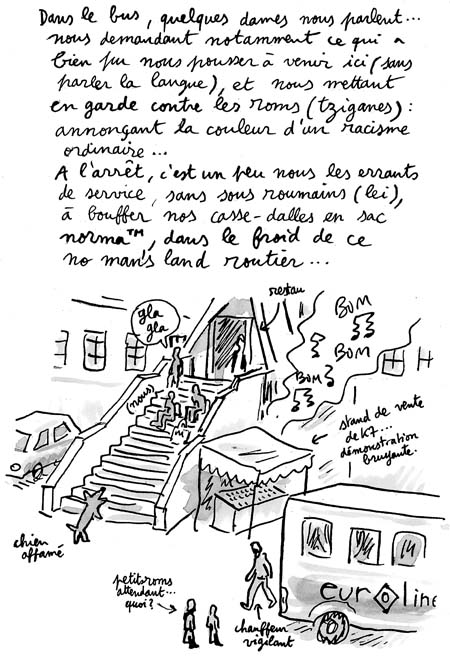 Dans le bus, quelques dames nous parlent...
nous demandant notamment ce qui a
bien pu nous pousser à venir ici (sans
parler la langue), et nous mettant
en garde contre les roms (tziganes) :
annonçant la couleur d'un racisme
ordinaire...
A l'arrêt, c'est un peu nous les errants
de service, sans sous roumains (lei),
à bouffer nos casse-dalles en sac
norma™, dans le froid de ce
no man's land routier...
restau
gla
gla
BOM
BOM
BOM
(nous)
stand de vente
de K7...
démonstration
bruyante.
chien
affamé
petits roms
attendant...
quoi ?
chauffeur
vigilant
euroline